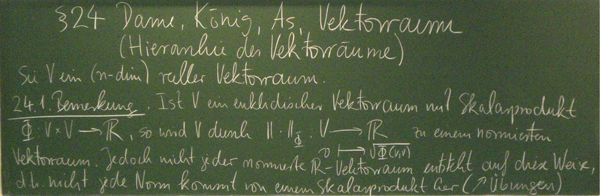 §24 Dame, König, As, Vektorraum
(Hierarchie der Vektorräume)
Sei V ein (n-dim) reeller Vektorraum.
24.1. Bemerkung. Ist V ein euklidischer Vektorraum mit Skalarprodukt
Φ: V×V → ℝ, so wird V durch ||·||_Φ: V → ℝ zu einem normierten
v ↦ √Φ(v,v)
Vektorraum. Jedoch nicht jeder normierte ℝ-Vektorraum entsteht auf diese Weise,
d.h. nicht jede Norm kommt von einem Skalarprodukt her (↗ Übungen)